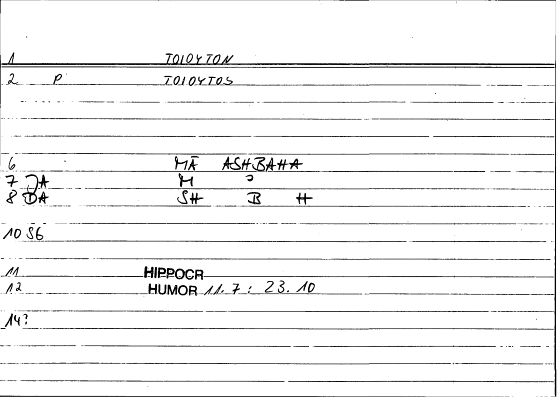 1 TOIOYTON
2 P TOIOYTOS
6 MĀ ASHBAHA
7 DA M ?
8 DA SH B H
10 S6
11 HIPPOCR
12 HUMOR 11.7 : 23.10
14?